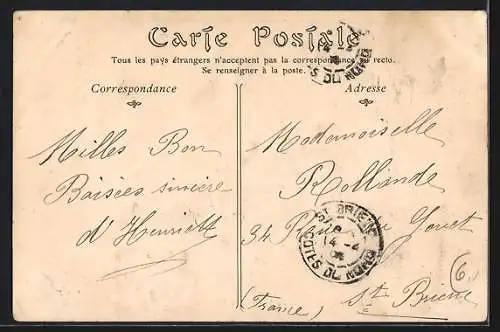 Carte Postale
Tous les pays étrangers n'acceptent pas la correspondance au recto.
Se renseigner à la poste.
Correspondance
Milles Bon
Baisées sincère
d'Henriette
Adresse
Mademoiselle
Rollande
34 Place du Gouet
St Brieuc
(France)
ST BRIEUC
14-2
COTES DU NORD
DU NORD
6